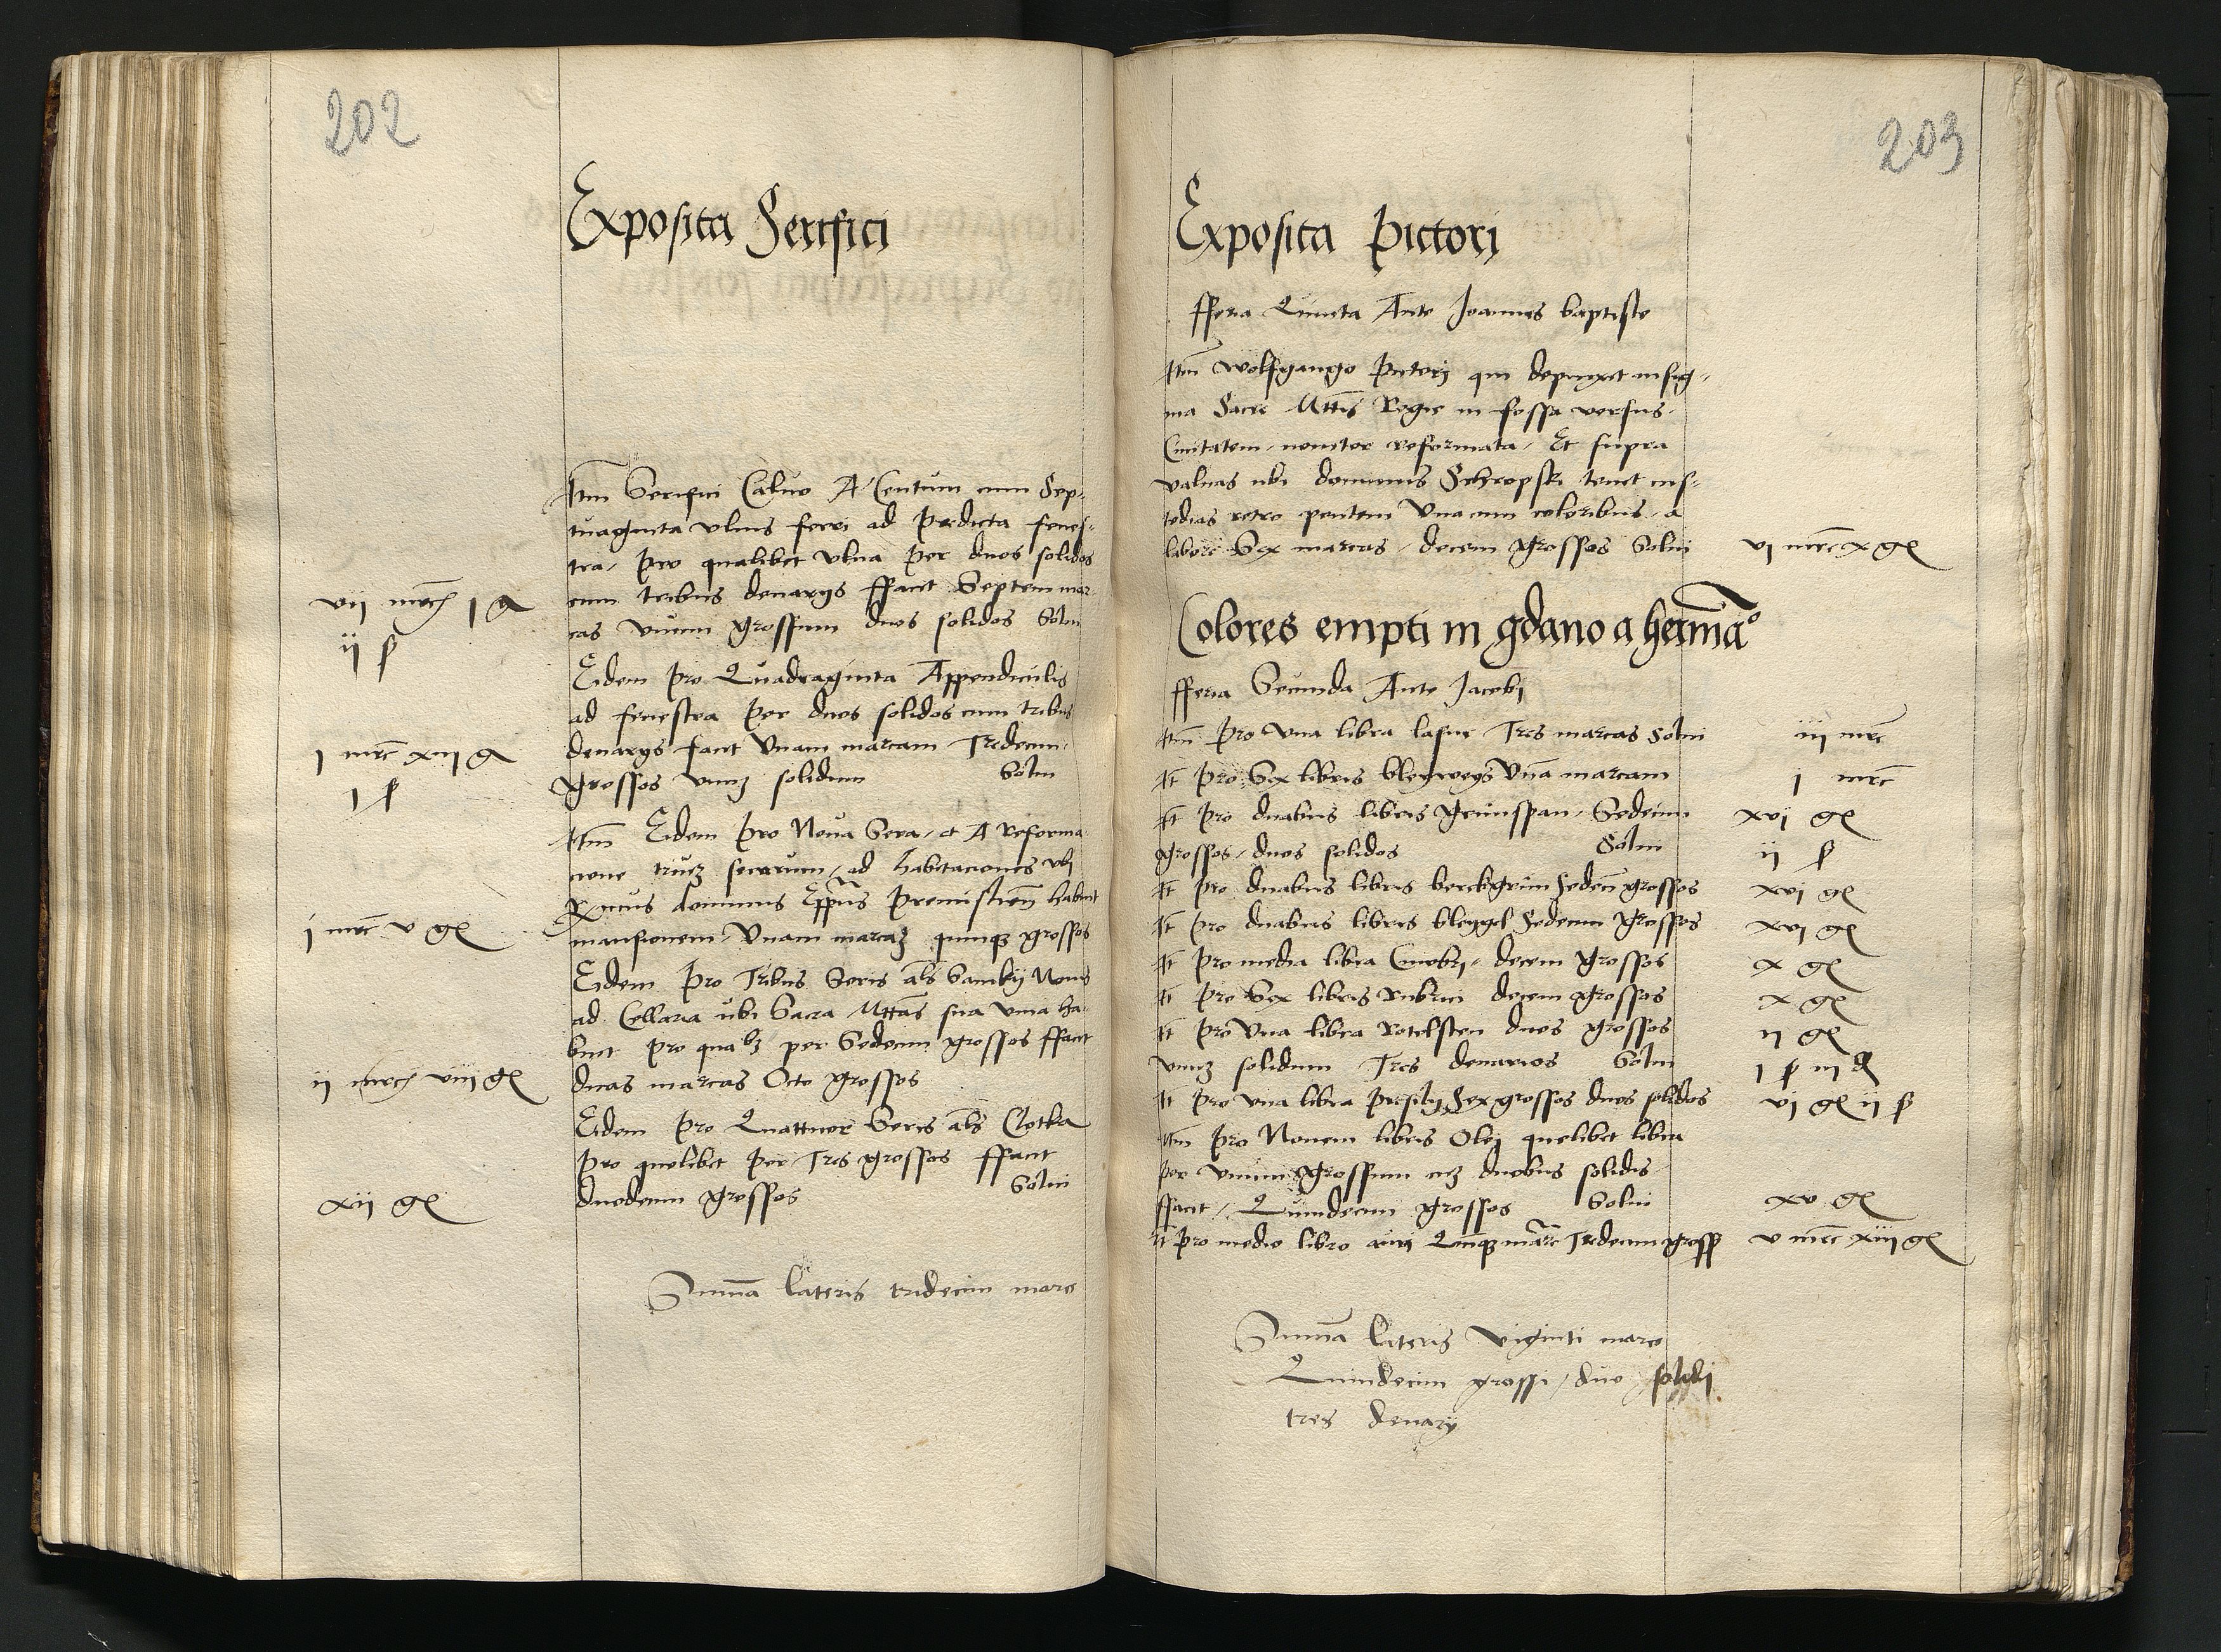 202
Exposita Serifici
Itm Serifici Caluo A Centum cum Sep-
tuaginta vlnis ferri ad predicta fenes-
tra, pro qualibet vlna per duos solidos
cum tribus denarys ffacit Septem mar-
cas vnum grossum duos solidos Solui
vij mrc j g
ij ſ
Eidem pro Quadraginta Appendiculis
ad fenestra per duos solidos cum tribus
denarys facit Vnam marcam Tredecim
grossos vnuz solidum Solui
j mrc xiij g
j ſ
Itm Eidem pro Noua Sera, et A reforma
cione triuz serarum, ad habitaciones vbj
Rmus dominus Eppus Premislien habuit
mansionem, Vnam marcaz quinqz grossos
j mrc v g
Eidem pro Tribus Seris als Samkij Nouis
ad Cellaria ubi Sacra Mttas sua vina ha-
buit pro qualz per Sedecim grossos ffacit
duas marcas Octo grossos
ij mrc viij g
Eidem pro Quattuor Seris als Clotka
pro quelibet per Tres grossos ffacit
duodecim grossos Solui
xij g
Summa lateris tridecim marc
203
Exposita Pictori
fferia Quinta Ante Joannis baptiste
Itm Wolfgango Pictori qui depinxit insig-
nia Sacre Mttis Regie in fossa versus
Ciuitatem, nouiter reformata, Et supra
valuas ubi dominus Schropski tenet cus-
todias retro pontem Vna cum coloribus, a
labore Sex marcas, decem grossos Solui
vi mrc x g
Colores empti in gdano a herma°
fferia Secunda Ante Jacobj
Itm pro Vna libra lasur Tres marcas Solui iij mrc
It pro Sex libris bleyweys Vna marcam j mrc
It pro duabus libris grunspan, Sedecim xvj g
grossos, duos solidos Solui ij ſ
It pro duabus libris berckgrun Sedeci grossos xvj g
It pro duabus libris bleygel Sedecim grossos xvj g
It pro media libra Cinobrj, decem grossos x g
It pro Sex libris rubrici decem grossos x g
It pro Vna libra rotelsten duos grossos ij g
vnuz solidum Tres denarios Solui j ſ iij d
It pro vna libra presilij Sex grossos duos solidos vj g ij ſ
Itm pro Nouem libris Olej quelibet libra
per vnum grossum cuz duobus solidis
ffacit, Quindecim grossos Solui xv g
It pro medio libro auri Quinqz marc Tredecim gross v mrc xiij g
Summa lateris viginti marc
Quindecim grossi, duo solidj
tres denarij